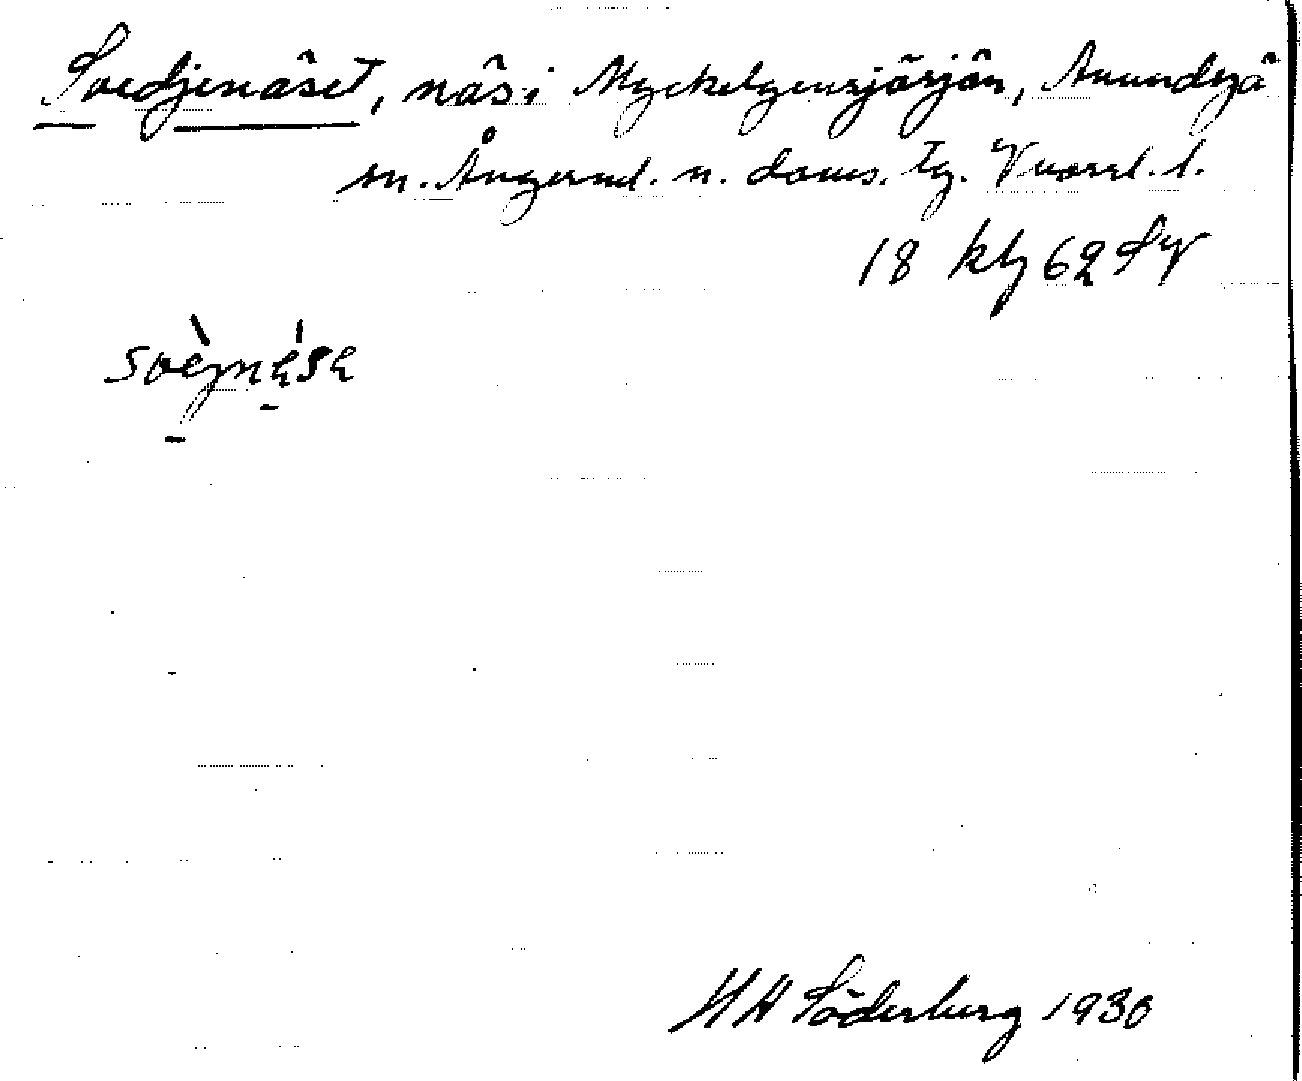 Svedjenäset, näs i Myckelgensjösjön, Anundsjö
sn. Ångerml. n. doms. tg. Västernorrl. l.
18 kbg 62 SV
svèjnése
HH Söderberg 1930